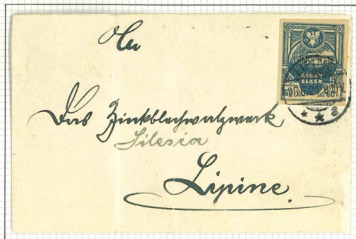 An
Das Zinkblechwalzwerk
Silesia
Lipine.